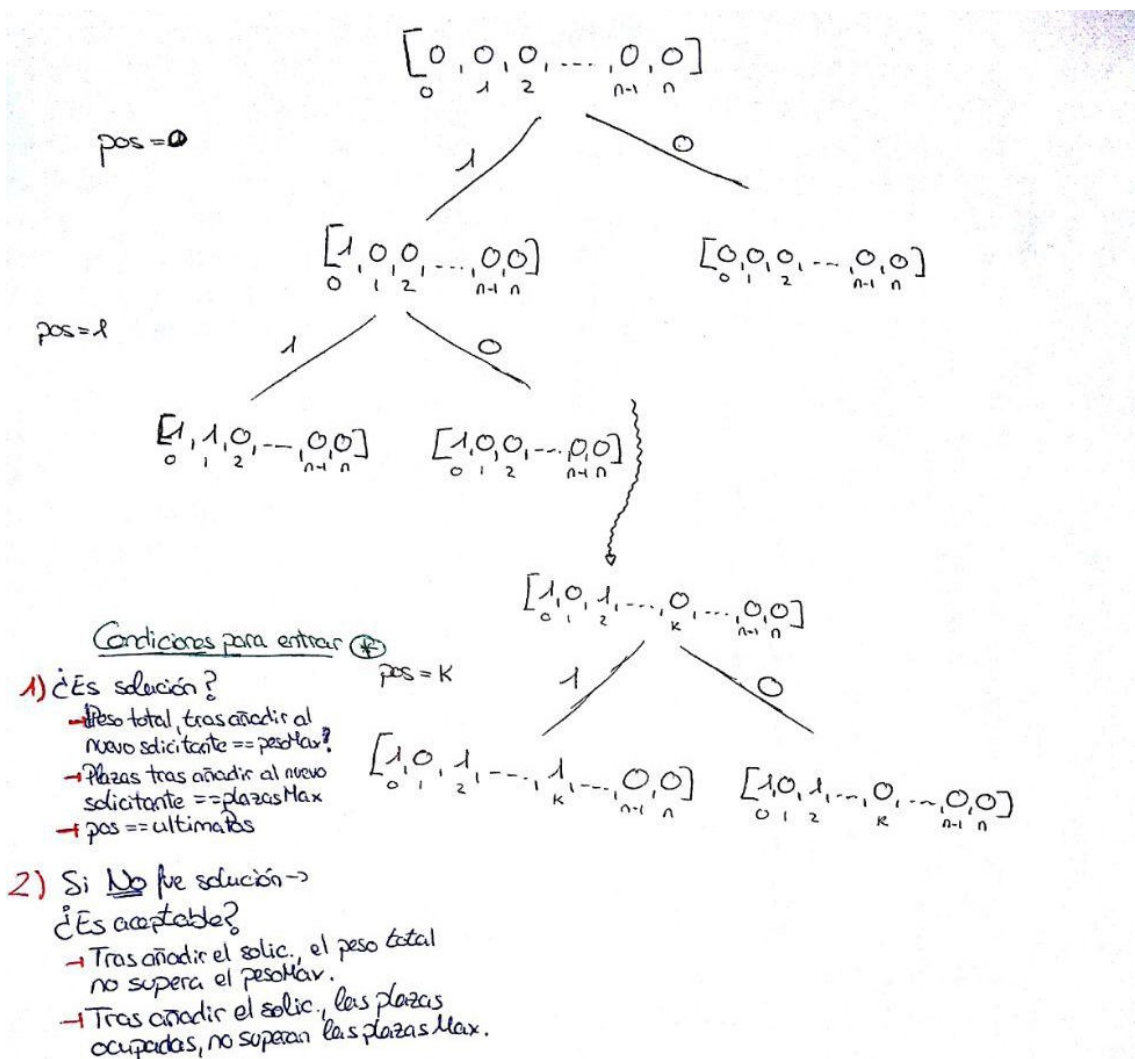 [0, 0, 0, ..., 0, 0]
0 1 2 n-1 n
pos=0
1 0
[1, 0, 0, ..., 0, 0]
0 1 2 n-1 n
[0, 0, 0, ..., 0, 0]
0 1 2 n-1 n
pos=1
1 0
[1, 1, 0, ..., 0, 0]
0 1 2 n-1 n
[1, 0, 0, ... 0, 0]
0 1 2 n-1 n
[1, 0, 1, ..., 0, ..., 0, 0]
0 1 2 k n-1 n
pos=K
1 0
[1, 0, 1, ..., 1, ..., 0, 0]
0 1 2 k n-1 n
[1, 0, 1, ..., 0, ..., 0, 0]
0 1 2 k n-1 n
Condiciones para entrar *
1) ¿Es solución?
→ Peso total, tras añadir al
nuevo solicitante == pesoMax?
→ Plazas tras añadir al nuevo
solicitante == plazasMax
→ pos == ultimaPos
2) Si No fue solución →
¿Es aceptable?
→ Tras añadir el solic., el peso total
no supera el pesoMax.
→ Tras añadir el solic., las plazas
ocupadas, no superan las plazas Max.